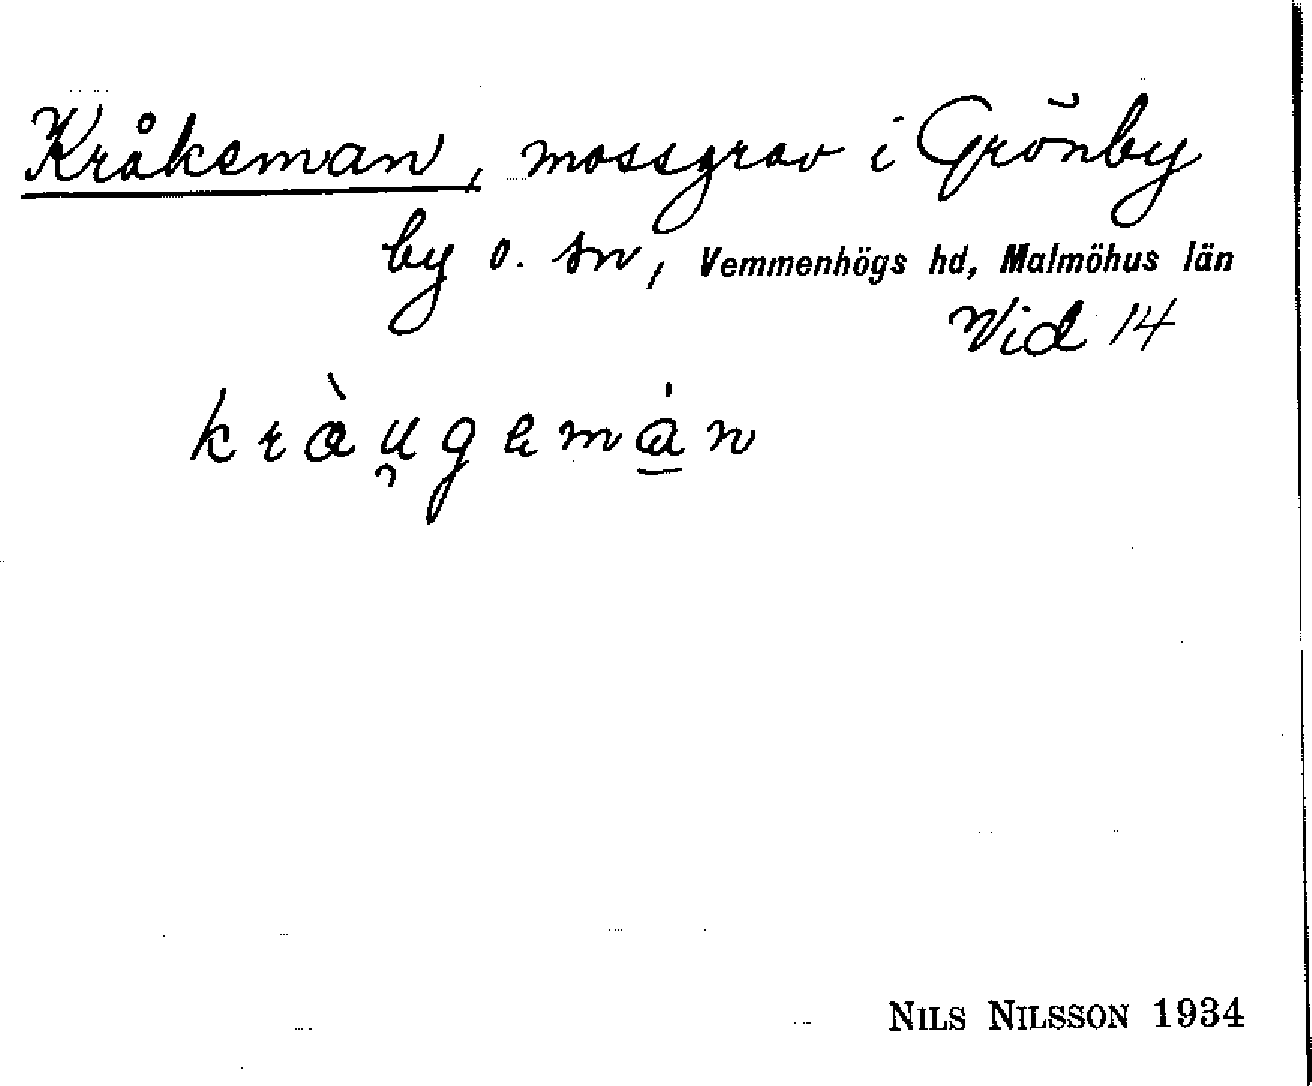 Kråkeman, mossgrav i Grönby
by o. sn, Vemmenhögs hd, Malmöhus län
Vid 14
kràu̯gemȧ̲n
NILS NILSSON 1934